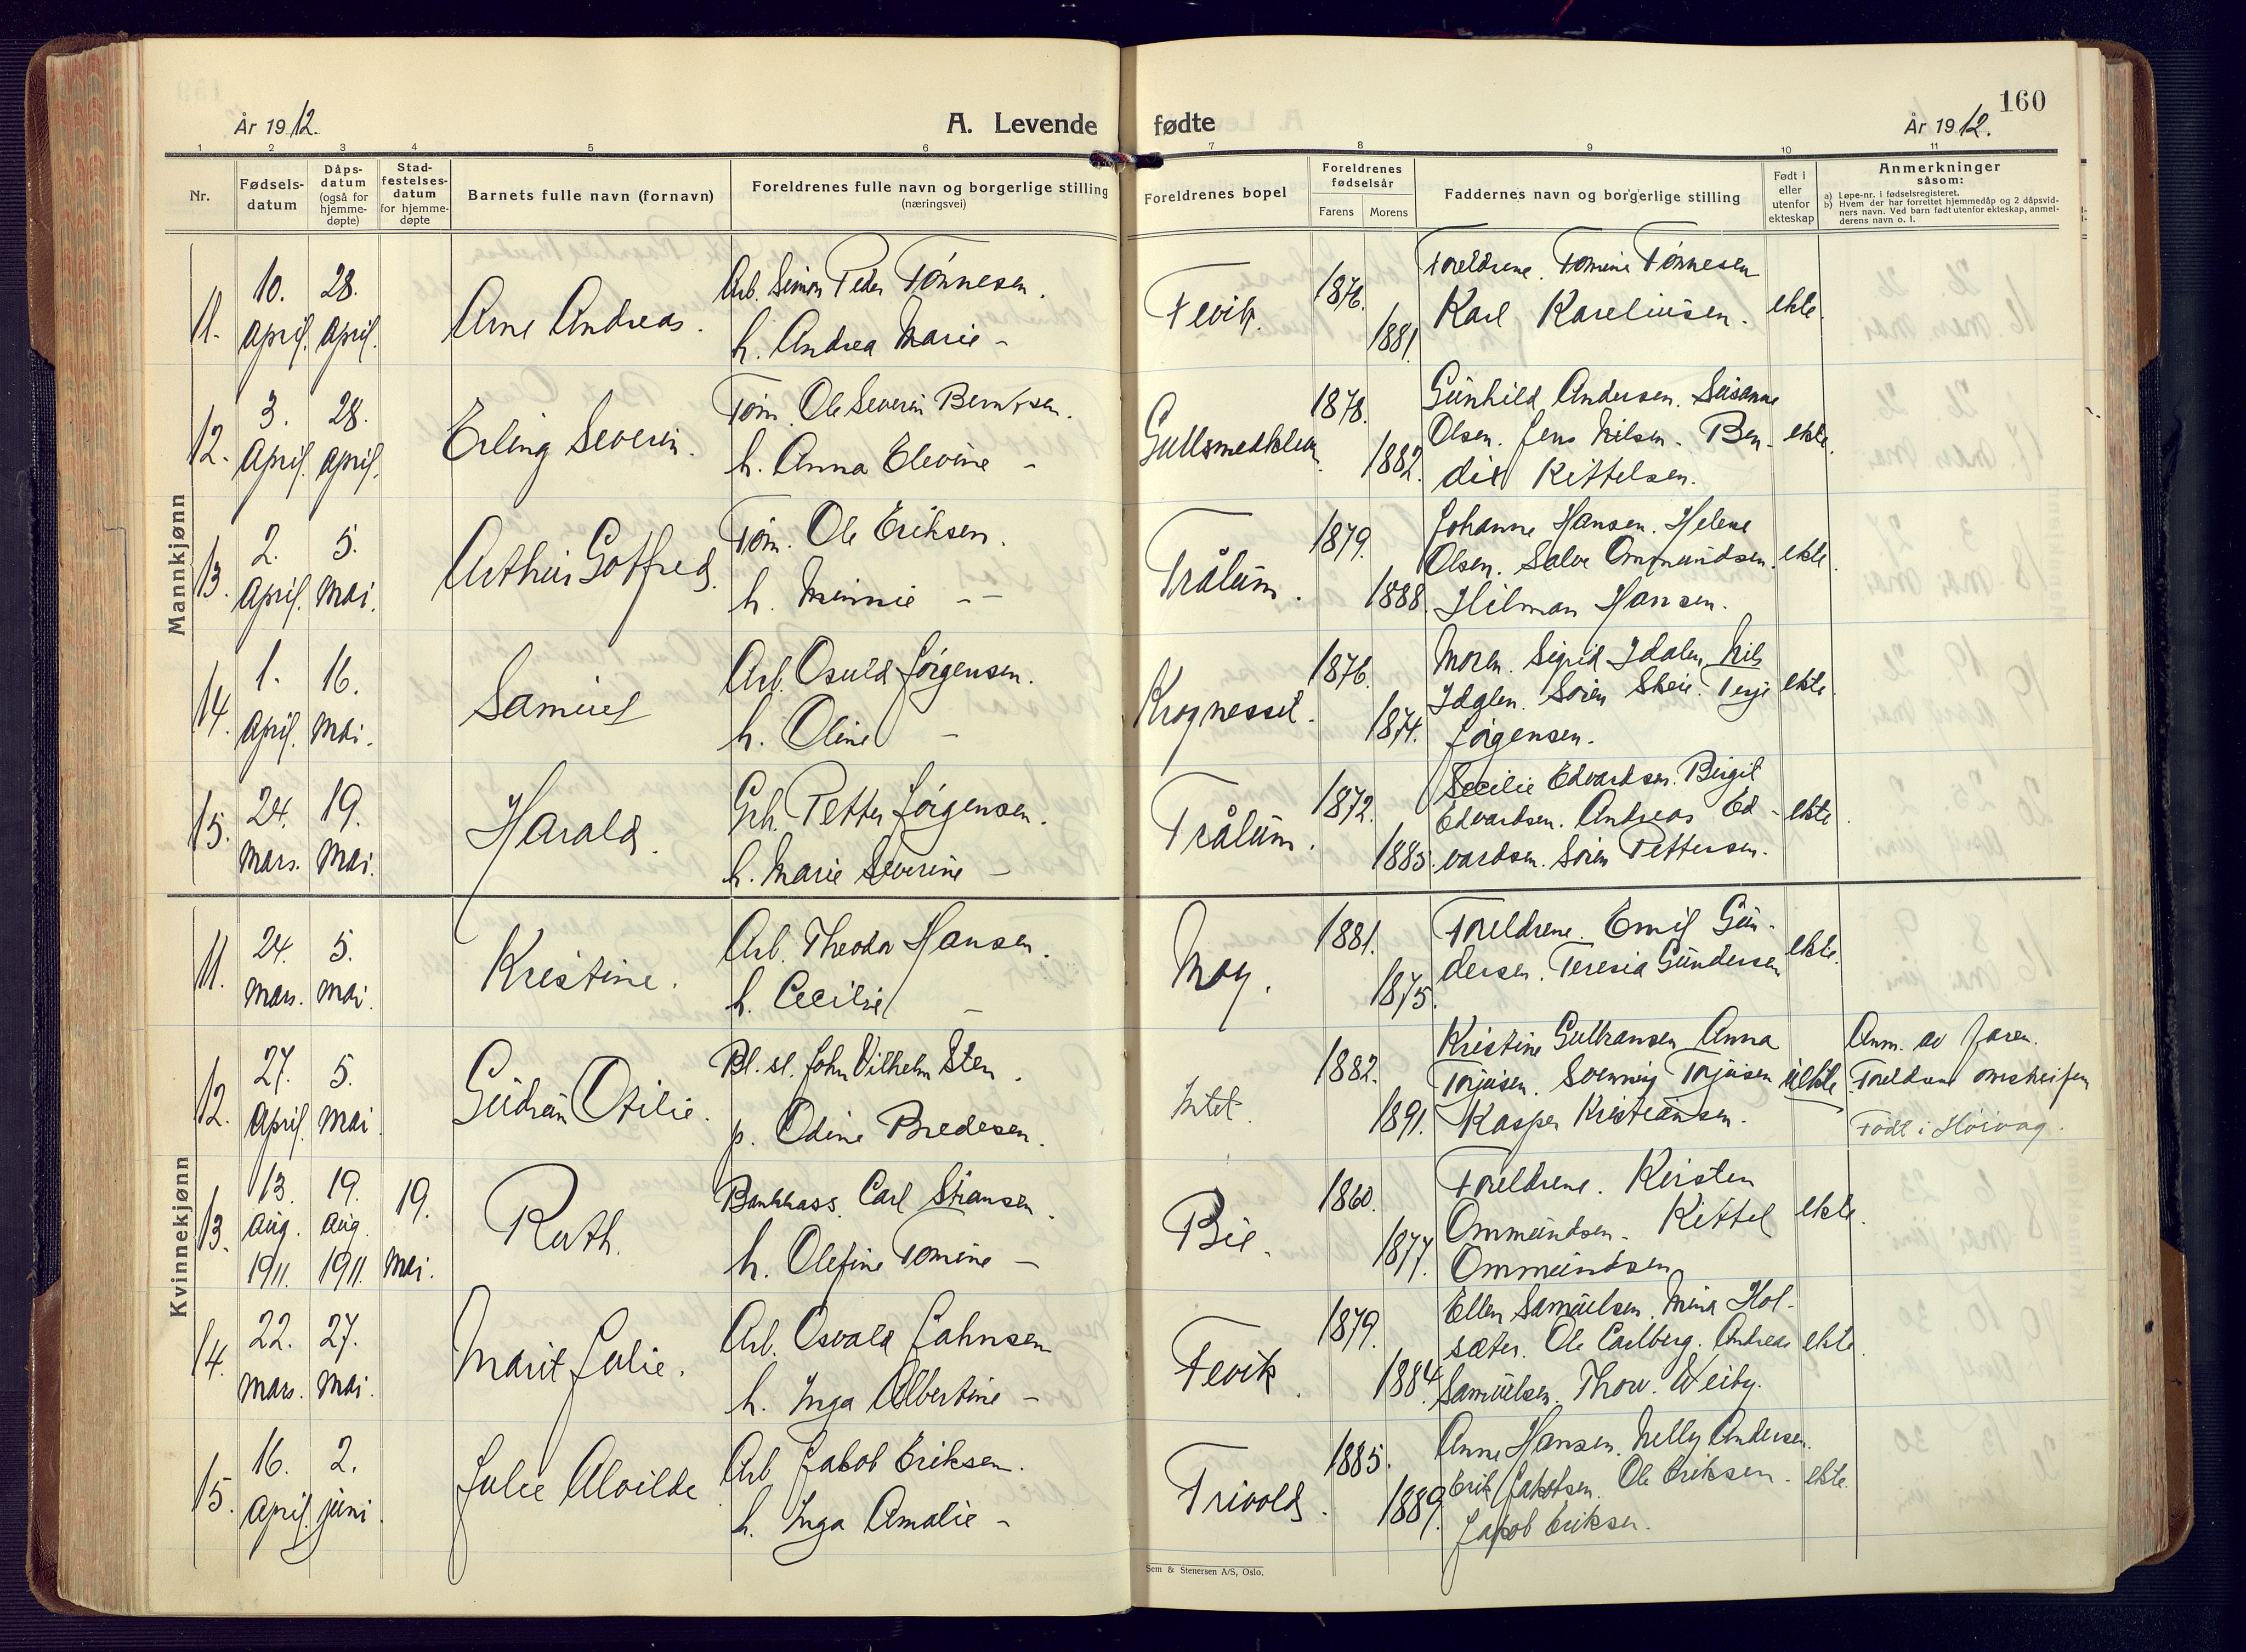 160
År 1912.
A. Levende fødte
År 1912.
1 2 3 4 5 6 7 8 9 10 11
Nr.
Fødsels-
datum
Dåps-
datum
(også for
hjemme-
døpte)
Stad-
festelses-
datum
for hjemme-
døpte
Barnets fulle navn (fornavn)
Foreldrenes fulle navn og borgerlige stilling
(næringsvei)
Foreldrenes bopel
Foreldrenes
fødselsår
Farens Morens
Faddernes navn og borgerlige stilling
Født i
eller
utenfor
ekteskap
Anmerkninger
såsom:
a) Løpe-nr. i fødselsregisteret.
b) Hvem der har forrettet hjemmedåp og 2 dåpsvid-
ners navn. Ved barn født utenfor ekteskap, anmel-
derens navn o. l.
Mannkjønn
11.
10.
April.
28.
April.
Arne Andreas.
Arb. Simon Peder Tönnesen.
h. Andrea Marie -
Fevik.
1876.
1881.
Foreldrene. Tomine Tönnesen
Karl Kareliusen.
ekte.
12.
3.
April.
28.
April.
Erling Severin.
Töm. Ole Severin Berntsen.
h. Anna Elevine -
Gullsmedkleiv.
1878.
1882.
Gunhild Andersen. Susanne
Olsen. Jens Nilsen. Ben-
dix Kittelsen.
ekte.
13.
2.
April.
5.
Mai.
Arthur Gotfred.
Töm. Ole Eriksen.
h. Minnie - -
Trålum.
1879.
1888.
Johanne Hansen. Helene
Olsen. Salve Ommundsen.
Hilman Hansen.
ekte.
14.
1.
April.
16.
Mai.
Samuel
Arb. Osuld Jörgensen.
h. Oline -
Krognesset.
1876.
1874.
Moren. Sigrid Idalen, Nils
Idalen. Sören Skeie. Terje
Jörgensen.
ekte.
15.
24.
Mars.
19.
Mai.
Harald.
Grb. Petter Jörgensen.
h. Marie Severine -
Trålum.
1872.
1885.
Secilie Edvardsen. Birgit
Edvardsen. Andreas Ed-
vardsen. Sören Pettersen.
ekte.
Kvinnekjønn
11.
24.
Mars.
5.
Mai.
Kristine.
Arb. Theodor Hansen.
h. Cecilie -
Moy.
1881.
1875.
Foreldrene. Emil Gun-
dersen. Teresia Gundersen
ekte.
12.
27.
April.
5.
Mai.
Gudrun Otilie.
Bl. sl. John Vilhelm Sten.
p. Odine Bredesen.
Intet.
1882.
1891.
Kristine Gulbransen Anna
Torjusen. Svennig Torjusen
Kasper Kristiansen.
uekte
Anm. av faren.
Foreldrene omstreifere
Født i Höivag.
13.
13.
Aug.
1911.
19.
Aug.
1911.
19.
Mai.
Ruth.
Bankkass. Carl Stiansen.
h. Olefine Tomine -
Bie.
1860.
1877.
Foreldrene. Kirsten
Ommundsen. Kittel
Ommundsen
ekte.
14.
22.
Mars.
27.
Mai.
Marit Julie.
Arb. Osvald Jahnsen
h. Inga Albertine -
Fevik.
1879.
1884.
Ellen Samuelsen. Mina Hol-
sæter. Ole Carlberg. Andreas
Samuelsen. Thow. Weiby.
ekte.
15.
16.
April.
2.
juni.
Julie Alvilde
Arb. Jakob Eriksen.
h. Inga Amalie -
Trivold.
1885.
1889.
Anne Hansen. Nelly Andersen.
Erik Jakobsen. Ole Eriksen.
Jakob Eriksen.
ekte.
Sem & Stenersen A/S, Oslo.